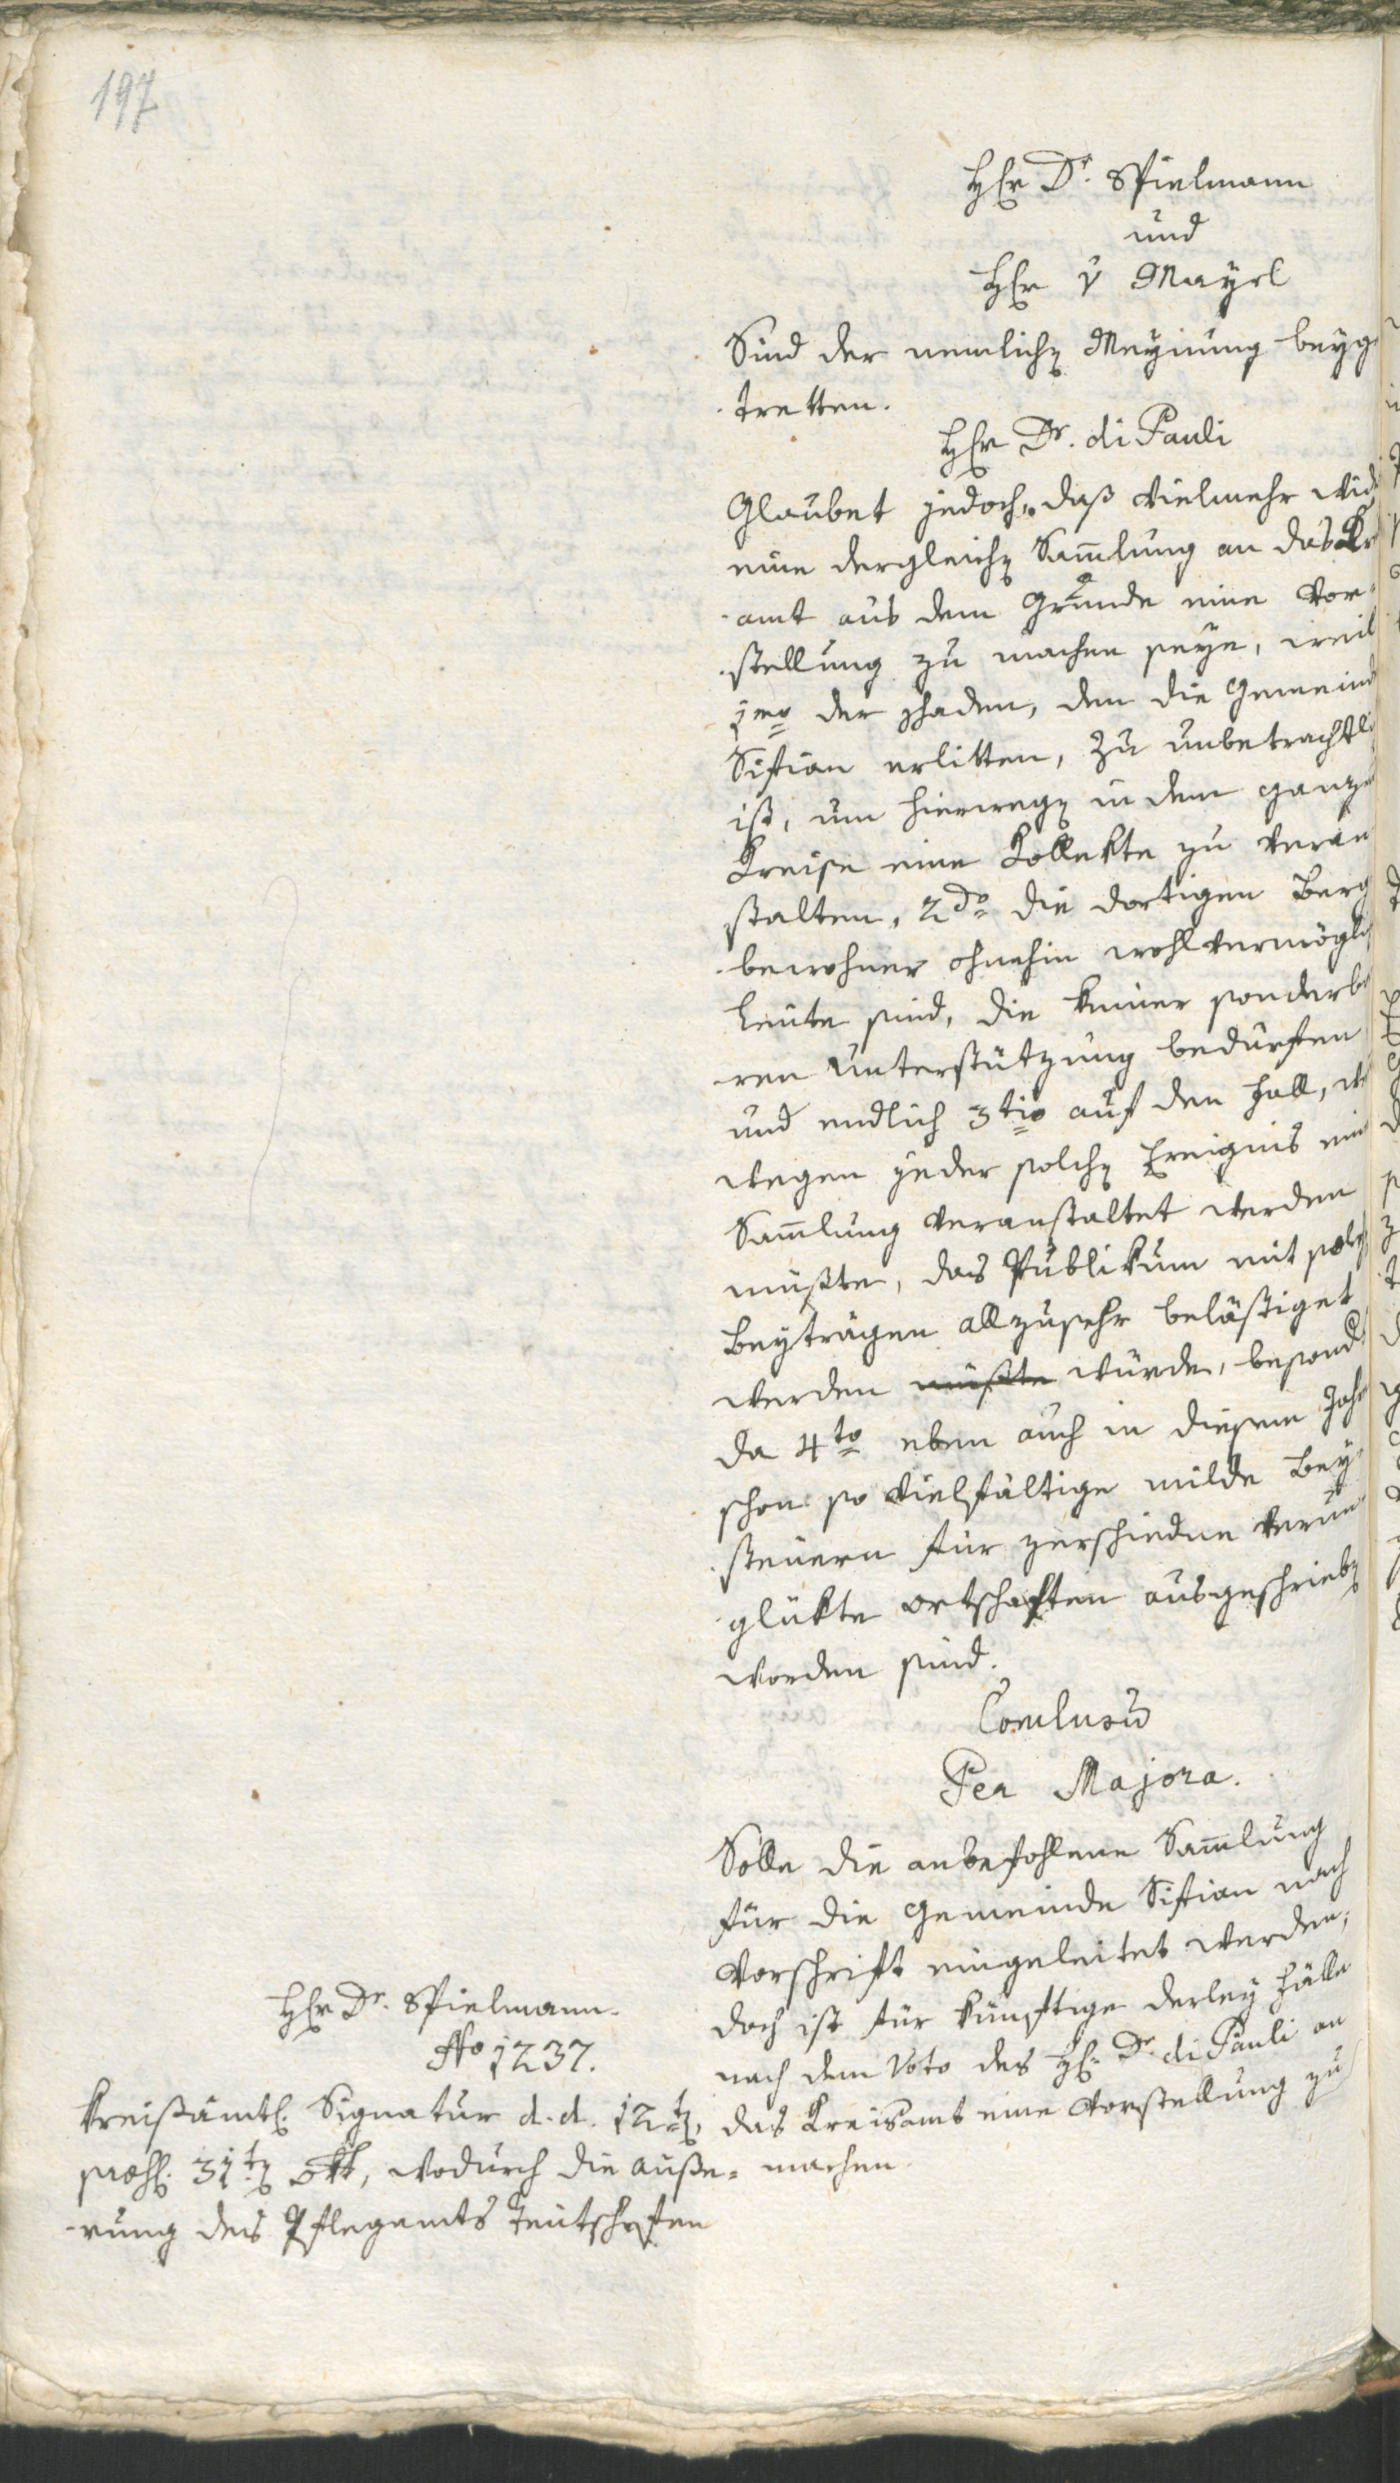 197
HEr Dr. Spielmann
und
HEr v Mayrl
Sind der nemlichen Meynung beyge
tretten.
HEr Dr. di Pauli
Glaubet jedoch, daß vielmehr wid
eine dergleichen Sammlung an das Kr
amt aus dem Grunde eine Vor-
stellung zu machen seye, weil
1mo der Schaden, den die Gemeind
Sifian erlitten, zu unbetrachtli
ist, um hierwegen in dem ganzen
Kreise eine Kollekte zu veran
stalten, 2do die dortigen Berg
bewohner ohnehin wohl vermöglich
Leute sind, die keiner sonderba
ren Unterstützung bedürften
und endlich 3tio auf den Fall, w
wegen jeder solchen Ereignis ein
Sammlung veranstaltet werden
müßte, das Publikum mit solch
Beyträgen allzusehr belästiget
werden müßte würde, besond
da 4to eben auch in diesem Jahr
schon so vielfältige milde Bey-
steuern für zerschiedne verun
glükte Ortschaften ausgeschrieben
worden sind.
Conclusum
Per Majora.
Solle die anbefohlene Sammlung
für die Gemeinde Sifian nach
Vorschrift eingeleitet werden,
doch ist für künftige derley Fälle
nach dem Voto des H. Dr. di Pauli an
das Kreisamt eine Vorstellung zu
machen.
HEr Dr. Spielmann.
No 1237.
Kreißämtl. Signatur d. d. 12ten,
præs. 31ten Okt, wodurch die Auße-
rung des Pflegamts Teutschofen